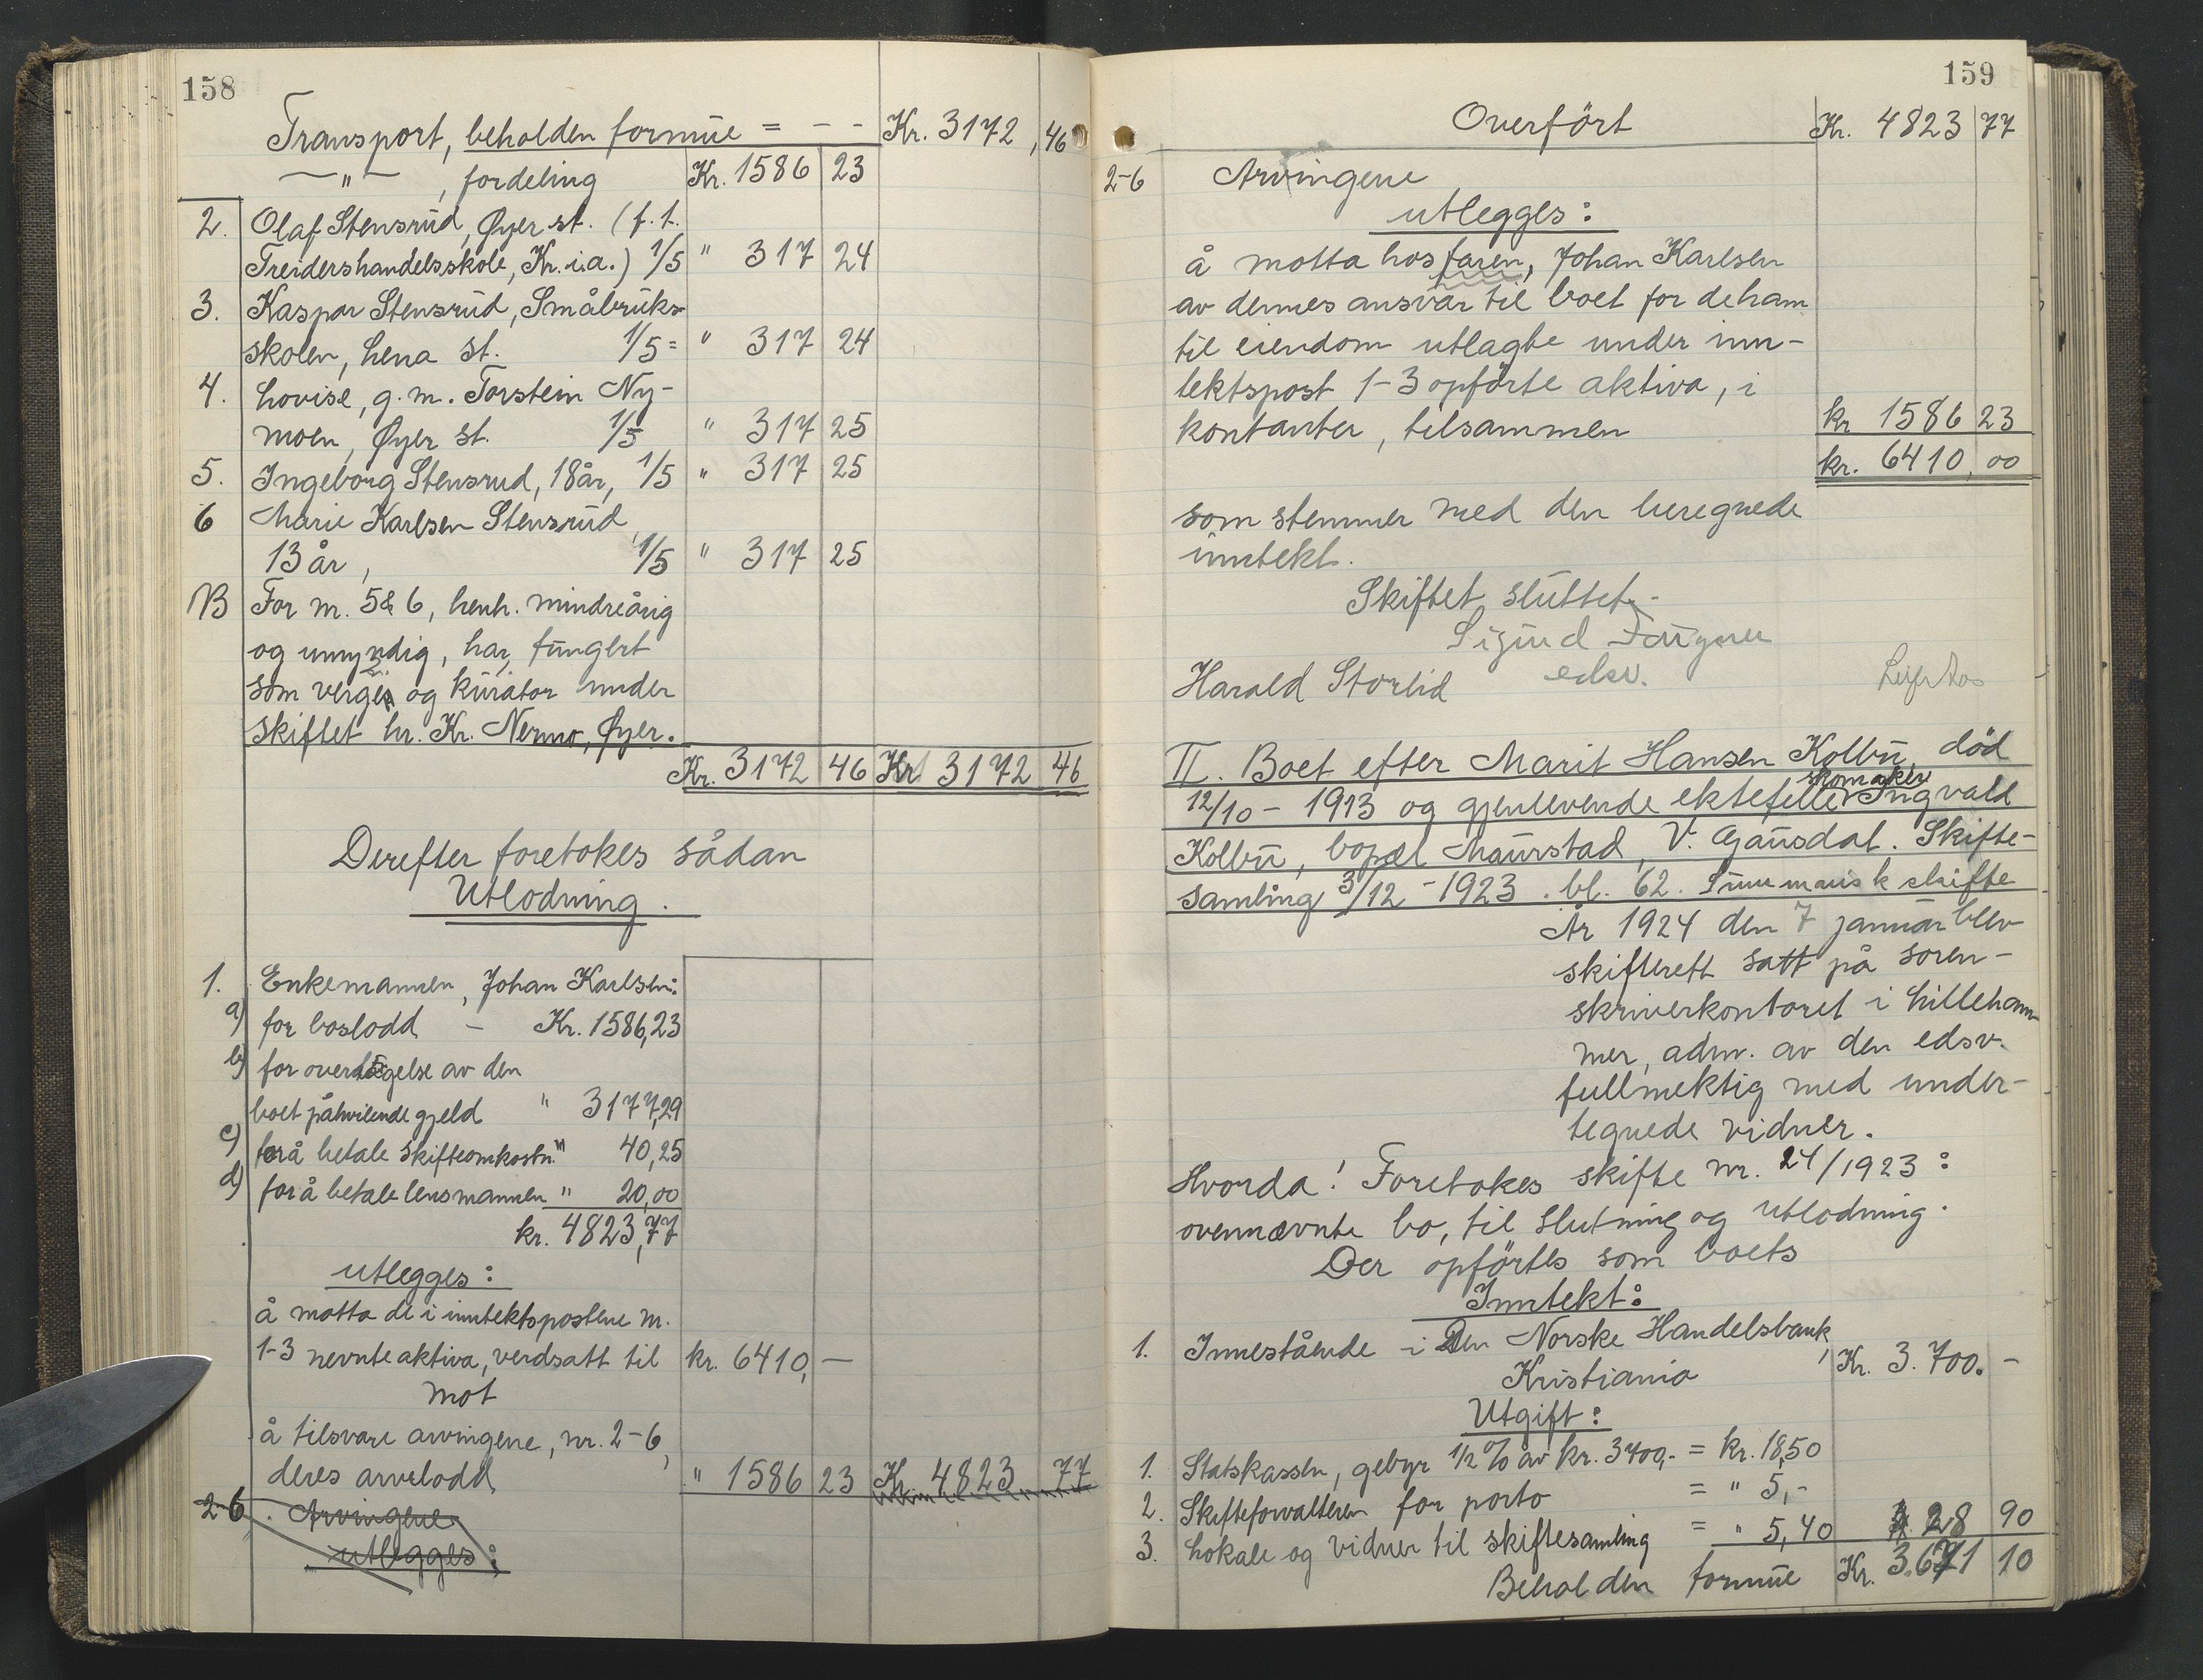 158
Transport, beholden formue = - - Kr. 3172,46
—"— , fordeling Kr. 1586 23
2. Olaf Stensrud, Øyer st. (f. t.
Treidershandelsskole, Kr.i.a.) 1/5 " 317 24
3. Kaspar Stensrud, Småbruks-
skolen, Lena st. 1/5 = " 317 24
4. Lovise, g. m. Torstein Ny-
moen, Øyer st. 1/5 " 317 25
5. Ingeborg Stensrud, 18 år, 1/5 " 317 25
6 Marie Karlsen Stensrud,
13 år, 1/5 " 317 25
NB For nr. 5 & 6, henh. mindreårig
og umyndig, har fungert
som verge og kurator under
skiftet hr. Kr. Nermo, Øyer.
Kr. 3172 46 Kr. 3172 46
Derefter foretokes sådan
Utlodning.
1. Enkemannen, Johan Karlsen:
a) for boslodd - Kr. 1586,23
b) for overtagelse av den
boet påhvilende gjeld " 3177,29
c) for å betale skifteomkostn. " 40,25
d) for å betale lensmannen " 20,00
kr. 4823,77
utlegges:
å motta de i inntektspostene nr.
1-3 nevnte aktiva, verdsatt til kr. 6410,—
mot
å tilsvare arvingene, nr. 2-6,
deres arvelodd " 1586 23 Kr. 4823 77
2-6. Arvingene
utlegges:
159
Overført Kr. 4823 77
2-6 Arvingene
utlegges:
å motta hos faren, Johan Karlsen
av dennes ansvar til boet for de ham
til eiendom utlagte under inn-
tektspost 1-3 opførte aktiva, i
kontanter, tilsammen kr 1586 23
kr. 6410,00
som stemmer med den beregnede
inntekt.
Skiftet sluttet.-
Sigurd
Harald Storlid edsv.
II. Boet efter Marit Hansen Kolbu, død
12/10 - 1913 og gjenlevende ektefelle skomaker Ingvald
Kolbu, bopæl Maurstad, V. Gausdal. Skifte-
samling 3/12 - 1923. bl. 62. Summarisk skifte
År 1924 den 7 januar blev
skifterett satt på soren-
skriverkontoret i Lilleham-
mer, adm. av den edsv.
fullmektig med under-
tegnede vidner.
Hvorda! Foretokes skifte nr. 24/1923:
ovennævnte bo, til slutning og utlodning.
Der opførtes som boets
Inntekt:
1. Innestående i Den Norske Handelsbank,
Kristiania Kr. 3.700. -
Utgift:
1. Statskassen, gebyr 1/2 % av kr. 3700,- = kr. 18,50
2. Skifteforvalteren for porto = " 5,-
3. Lokale og vidner til skiftesamling = " 5,40 28 90
Beholden formue Kr. 3.671 10